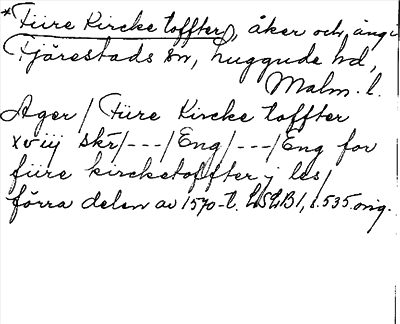 *Fiire Kircke toffter, åker och äng i
Fjärestads sn, Luggude hd,
Malm. l.
Ager / Fiire Kircke toffter
xviij skr / - - - / Eng / - - - / Eng for
fiire kircketoffter j les /
förra delen av 1570-t. LSLB1, s. 535. orig.